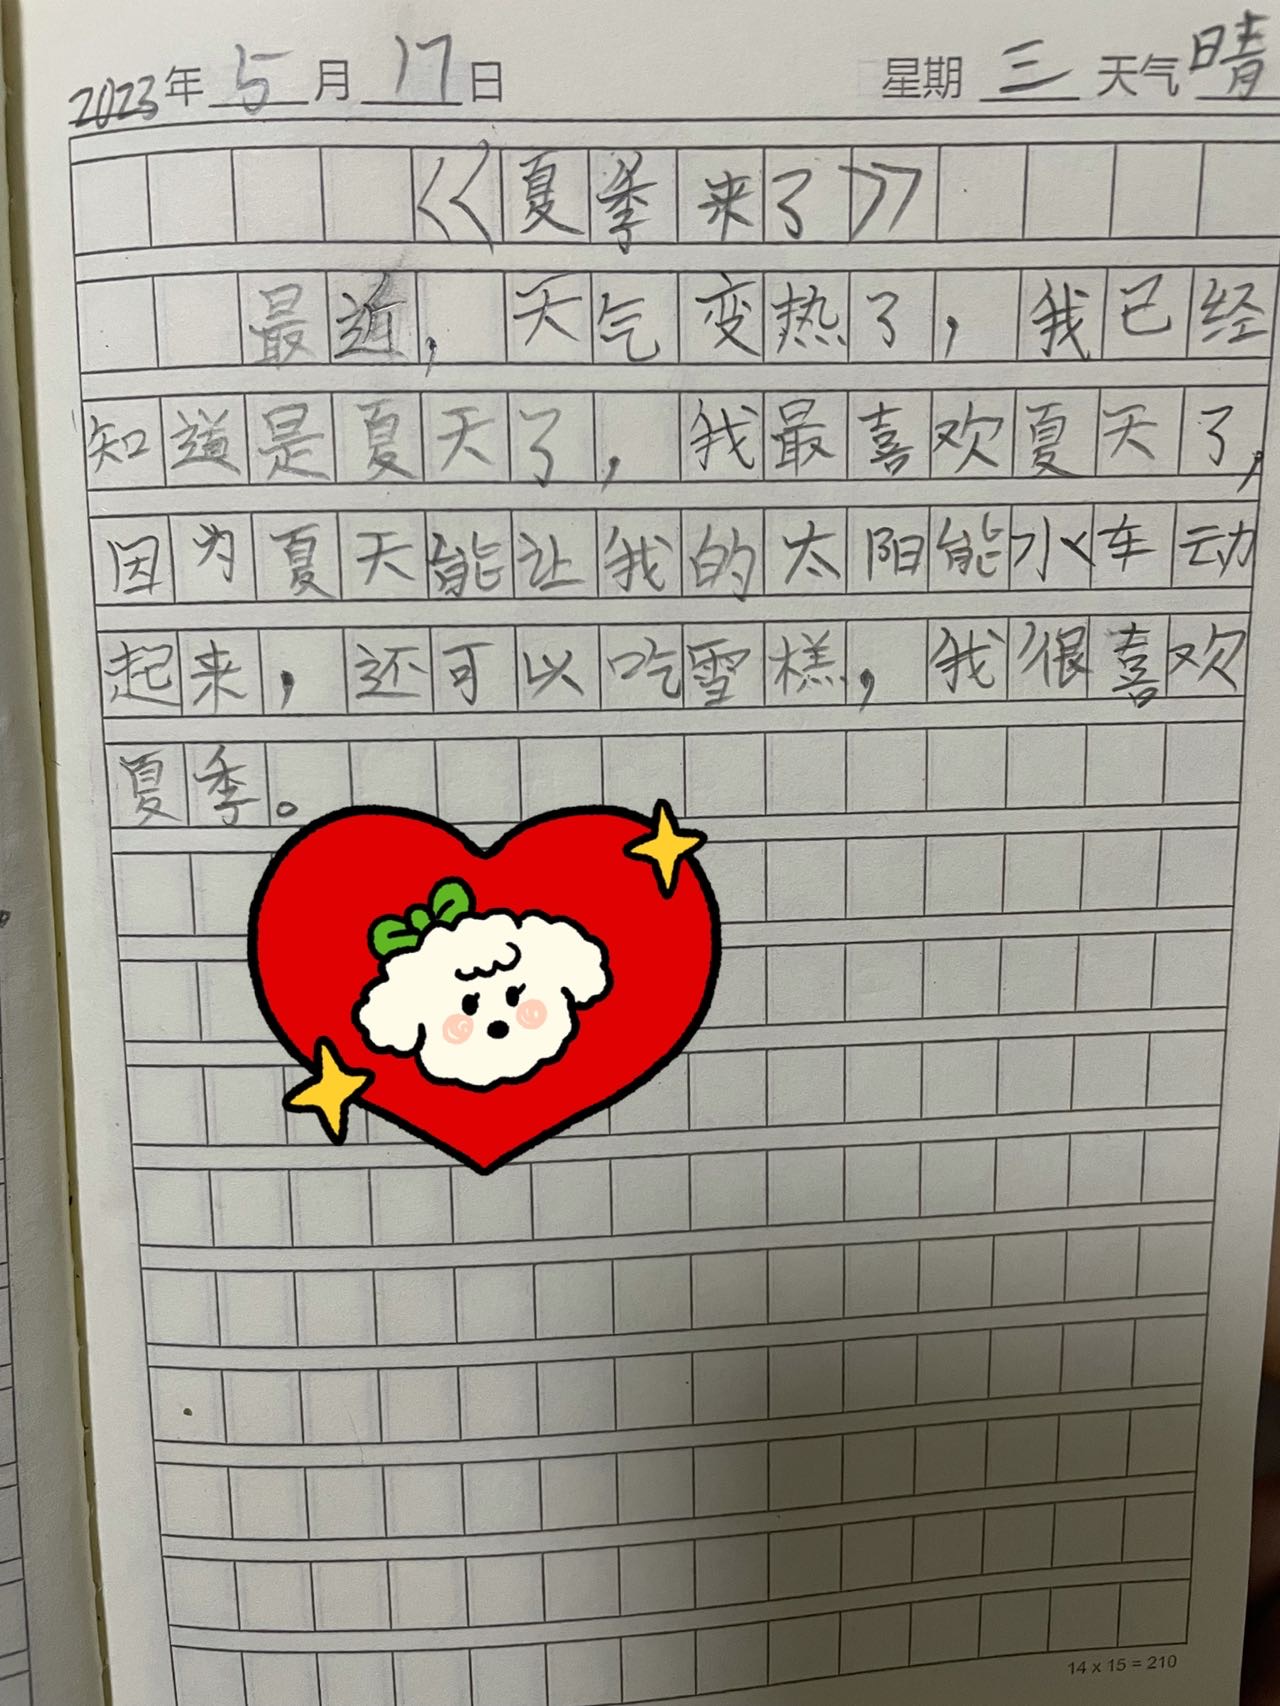 2023年 5 月 17 日 星期 三 天气 晴
《夏季来了》
最近，天气变热了，我已经
知道是夏天了，我最喜欢夏天了，
因为夏天能让我的太阳能水车动
起来，还可以吃雪糕，我很喜欢
夏季。
14 x 15 = 210